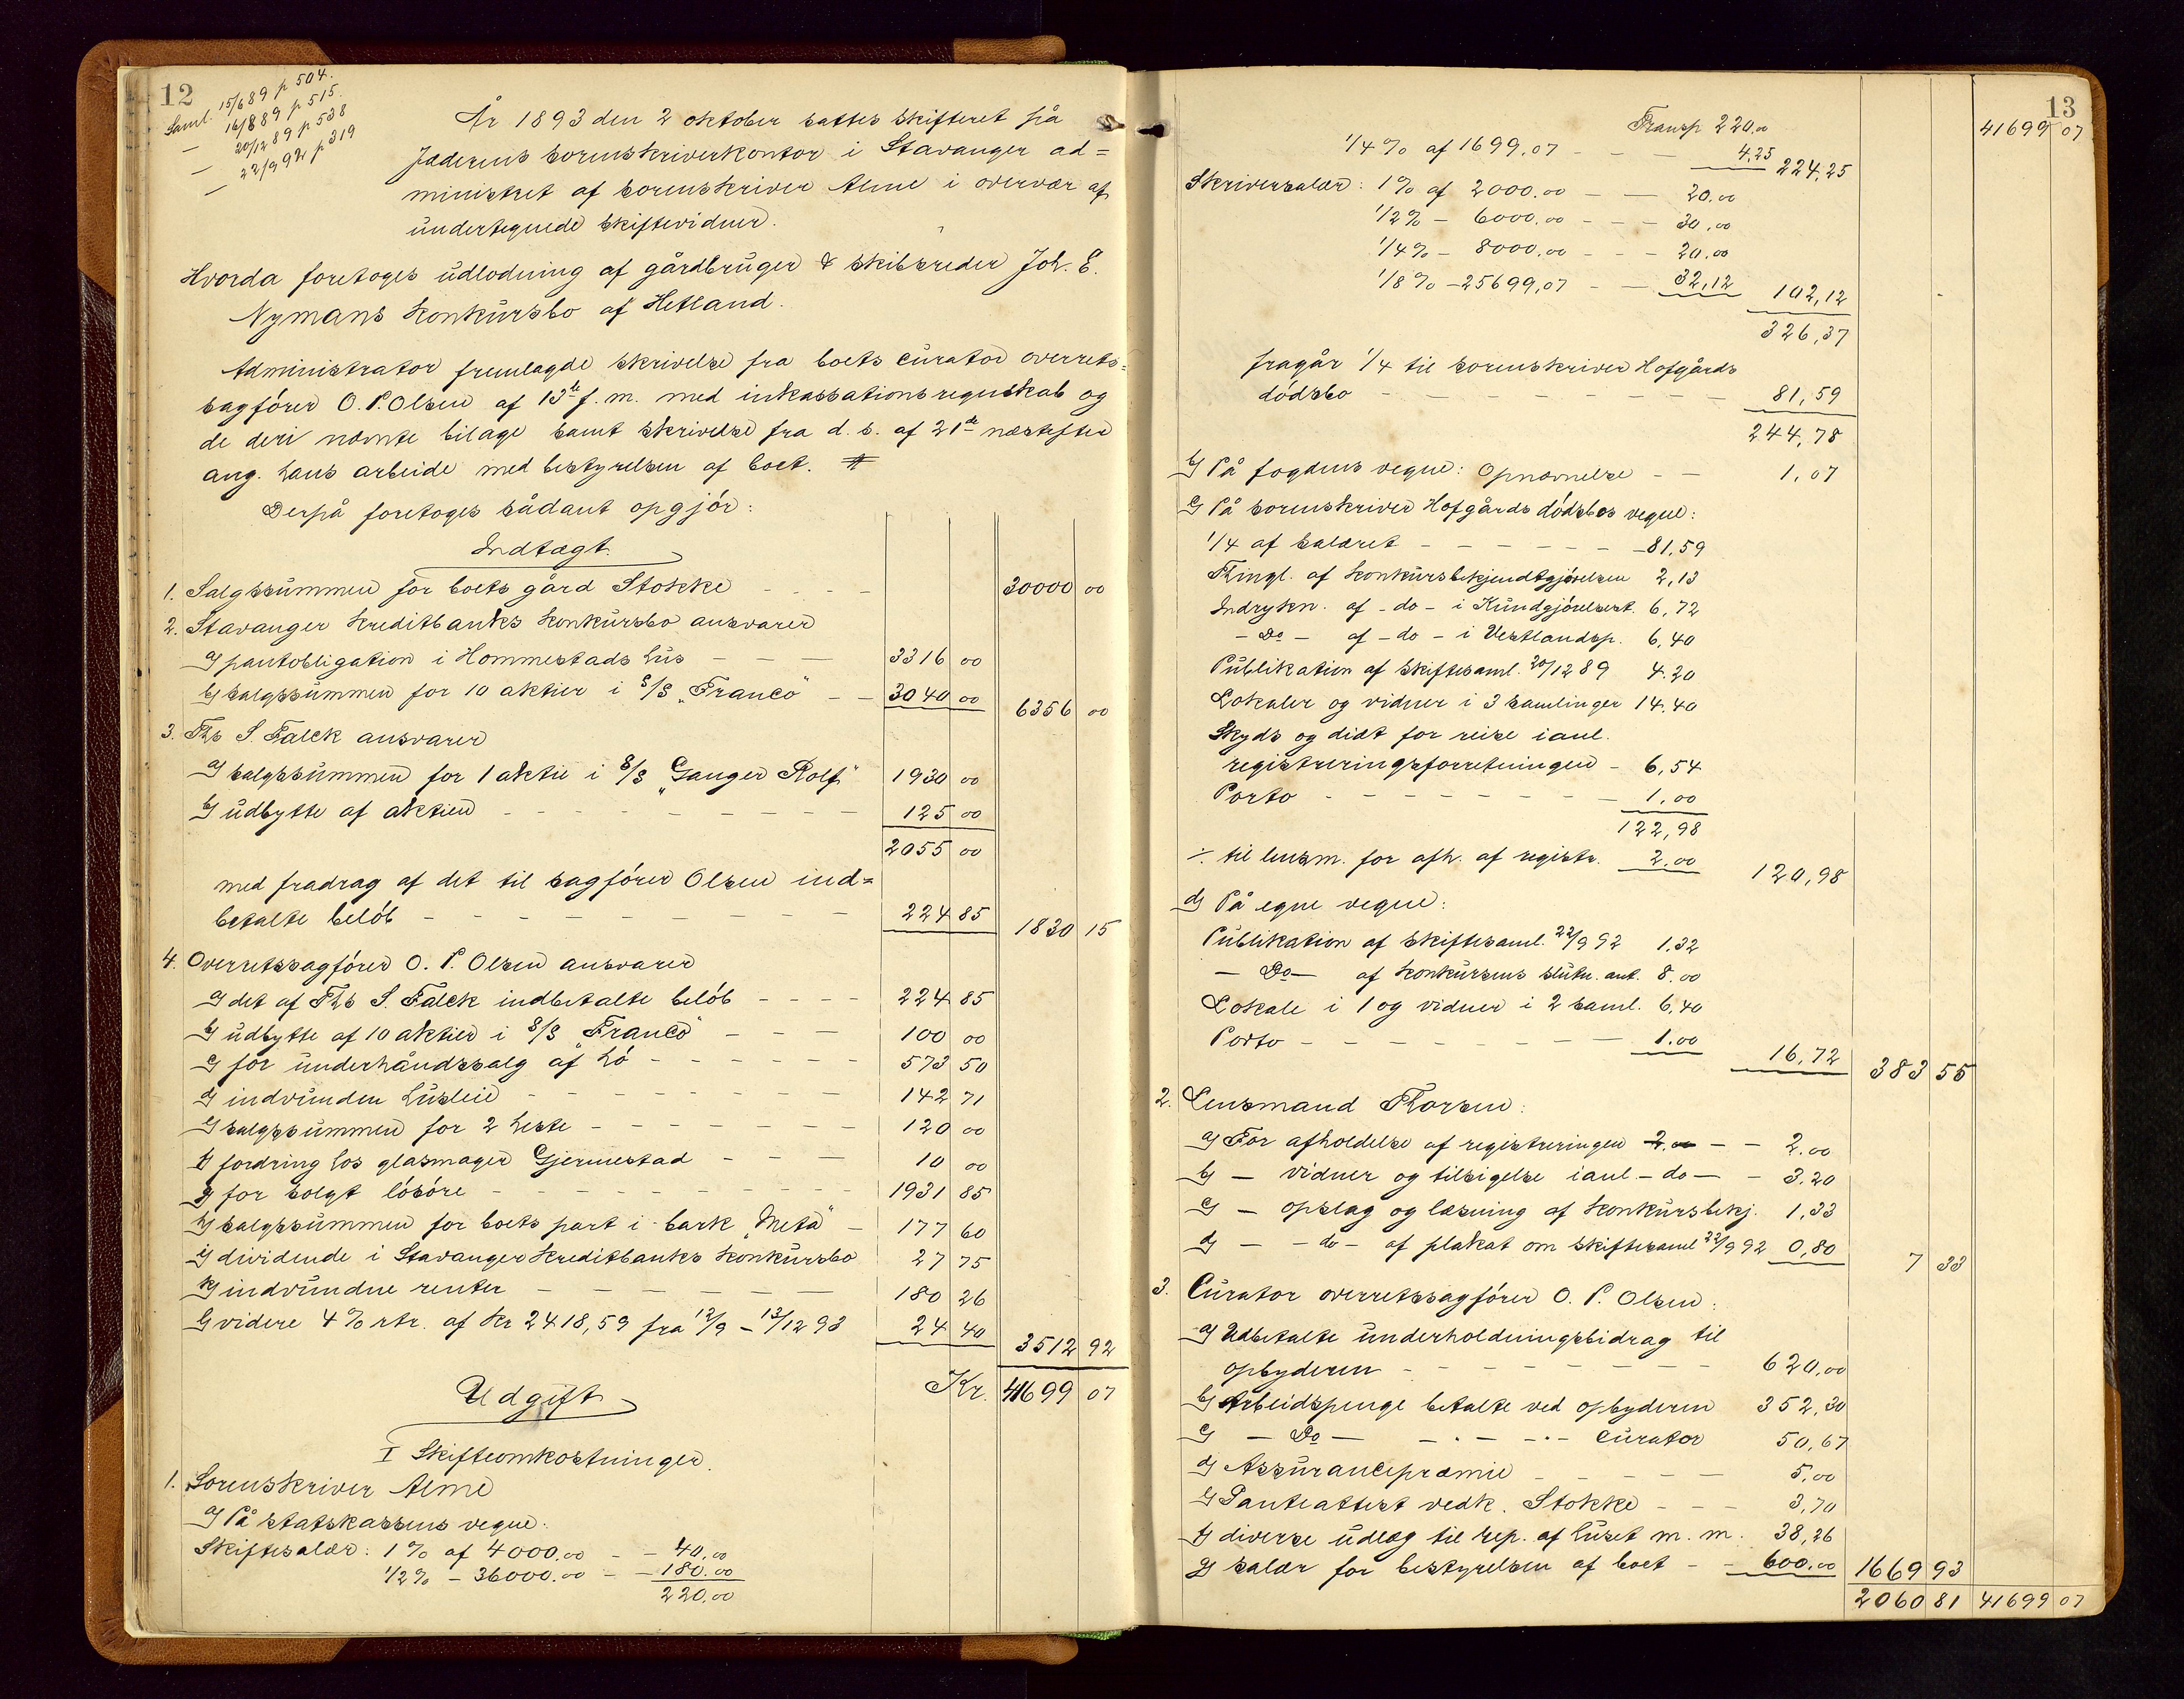 12
Saml. 15/6 89 p 504.
— 16/8 89 p 515.
— 20/12 89 p 538
— 22/9 92 p 319
År 1893 den 2 oktober sattes skifteret på
Jæderens sorenskriverkontor i Stavanger ad=
ministret af sorenskriver Alme i overvær af
undertegnede skiftevidner.
Hvorda foretoges udlodning af gårdbruger & skibsreder Joh. E.
Nymans konkursbo af Hetland.
Administrator fremlagde skrivelse fra boets curator overrets=
sagfører O. P. Olsen af 13de f. m. med inkassationsregnskab og
de deri nævnte bilage samt skrivelse fra d. s. af 21de næstefter
ang. hans arbeide med bestyrelsen af boet.
Derpå foretoges sådant opgjör:
Indtægt.
1. Salgssummen for boets gård Stokke - - - - 30000 00
2. Stavanger Kreditbanks konkursbo ansvarer
a) pantobligation i Hommestads hus - - - 3316 00
b) salgssummen for 10 aktier i S/S "Franco" - - 3040 00 6356 00
3. Ths S. Falck ansvarer
a) salgssummen for 1 aktie i S/S "Ganger Rolf" 1930 00
b) udbytte af aktien - - - - - - - - 125 00
2055 00
med fradrag af det til sagfører Olsen ind=
betalte belöb - - - - - - - - 224 85 1830 15
4. Overretssagfører O. P. Olsen ansvarer
a) det af Ths S. Falck indbetalte belöb - - - - 224 85
b) udbytte af 10 aktier i S/S "Franco" - - - 100 00
c) for underhåndssalg af hö - - - - - - 573 50
d) indvunden husleie - - - - - - - - 142 71
e) salgssummen for 2 heste - - - - - - - 120 00
f) fordring hos glasmager Gjermestad - - - 10 00
g) for solgt lösöre - - - - - - - - - 1931 85
h) salgssummen for boets part i bark "Meta" - 177 60
i) dividende i Stavanger Kreditbanks konkursbo 27 75
k) indvundne renter - - - - - - - 180 26
l) videre 4 % rtr. af Kr 2418,59 fra 12/9 – 13/12 93 24 40 3512 92
Kr. 41699 07
Udgift
I Skifteomkostninger.
1. Sorenskriver Alme
a) På statskassens vegne:
Skiftesalær: 1 % af 4000.00 - - 40.00
1/2 % – 36000.00 - - 180.00
220.00
13
Transp 220.00 41699 07
1/4 % af 1699.07 - - - 4.25 224,25
Skriversalær: 1 % af 2000.00 - - 20.00
1/2 % – 6000.00 - - - 30.00
1/4 % – 8000.00 - - - 20.00
1/8 % – 25699,07 - - 32,12 102,12
326,37
fragår 1/4 til sorenskriver Hofgårds
dödsbo - - - - - - - - - 81,59
244,78
b) På fogdens vegne: Opnævnelse - - 1,07
c) På sorenskriver Hofgårds dödsbos vegne:
1/4 af salæret - - - - - - 81,59
Thingl. af konkursbekjendtgjörelsen 2,13
Indrykn. af – do – i Kundgjörelsest. 6,72
– Do – af – do – i Vestlandsp. 6,40
Publikation af skiftesaml. 20/12 89 4.20
Lokaler og vidner i 3 samlinger 14.40
Skyds og diæt for reise i anl.
registreringsforretningen - 6,54
Porto - - - - - - - - 1.00
122,98
÷ til lensm. for afh. af registr. 2.00 120,98
d) På egne vegne:
Publikation af skiftesaml. 22/9 92 1.32
– Do – af konkursens slutn. ant. 8.00
Lokale i 1 og vidner i 2 saml. 6,40
Porto - - - - - - - - 1.00 16,72 383 55
2. Lensmand Thorsen:
a) For afholdelse af registreringen 2.00 - - 2.00
b) — vidner og tilsigelse i anl. – do – - 3.20
c) — opslag og læsning af konkursbekj. 1,33
d) — – do – af plakat om skiftesaml 22/9 92 0,80 7 33
3. Curator overretssagfører O. P. Olsen:
a) Udbetalte underholdningsbidrag til
opbyderen - - - - - - - - 620,00
b) Arbeidspenge betalte ved opbyderen 352,30
c) — Do — – · – – · – curator 50,67
d) Assurancepræmie - - - - - 5,00
e) Panteattest vedk. Stokke - - - 3,70
f) diverse udlæg til rep. af huset m. m. 38,26
g) salær for bestyrelsen af boet - - 600.00 1669 93
2060 81 41699 07